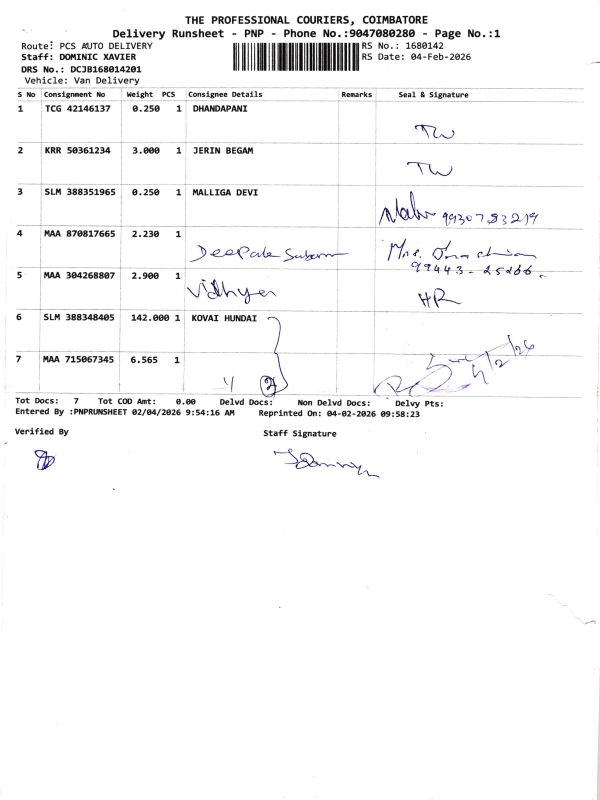 THE PROFESSIONAL COURIERS, COIMBATORE
Delivery Runsheet - PNP - Phone No.:9047080280 - Page No.:1
Route: PCS AUTO DELIVERY
RS No.: 1680142
Staff: DOMINIC XAVIER
RS Date: 04-Feb-2026
DRS No.: DCJB168014201
Vehicle: Van Delivery
S No Consignment No Weight PCS Consignee Details Remarks Seal & Signature
1 TCG 42146137 0.250 1 DHANDAPANI
TW
2 KRR 50361234 3.000 1 JERIN BEGAM
TW
3 SLM 388351965 0.250 1 MALLIGA DEVI
9930783219
4 MAA 870817665 2.230 1
Deepak
99443-25266
5 MAA 304268807 2.900 1 Vidhya
HR
6 SLM 388348405 142.000 1 KOVAI HUNDAI
7 MAA 715067345 6.565 1
4/2/26
Tot Docs: 7 Tot COD Amt: 0.00 Delvd Docs: Non Delvd Docs: Delvy Pts:
Entered By :PNPRUNSHEET 02/04/2026 9:54:16 AM Reprinted On: 04-02-2026 09:58:23
Verified By Staff Signature